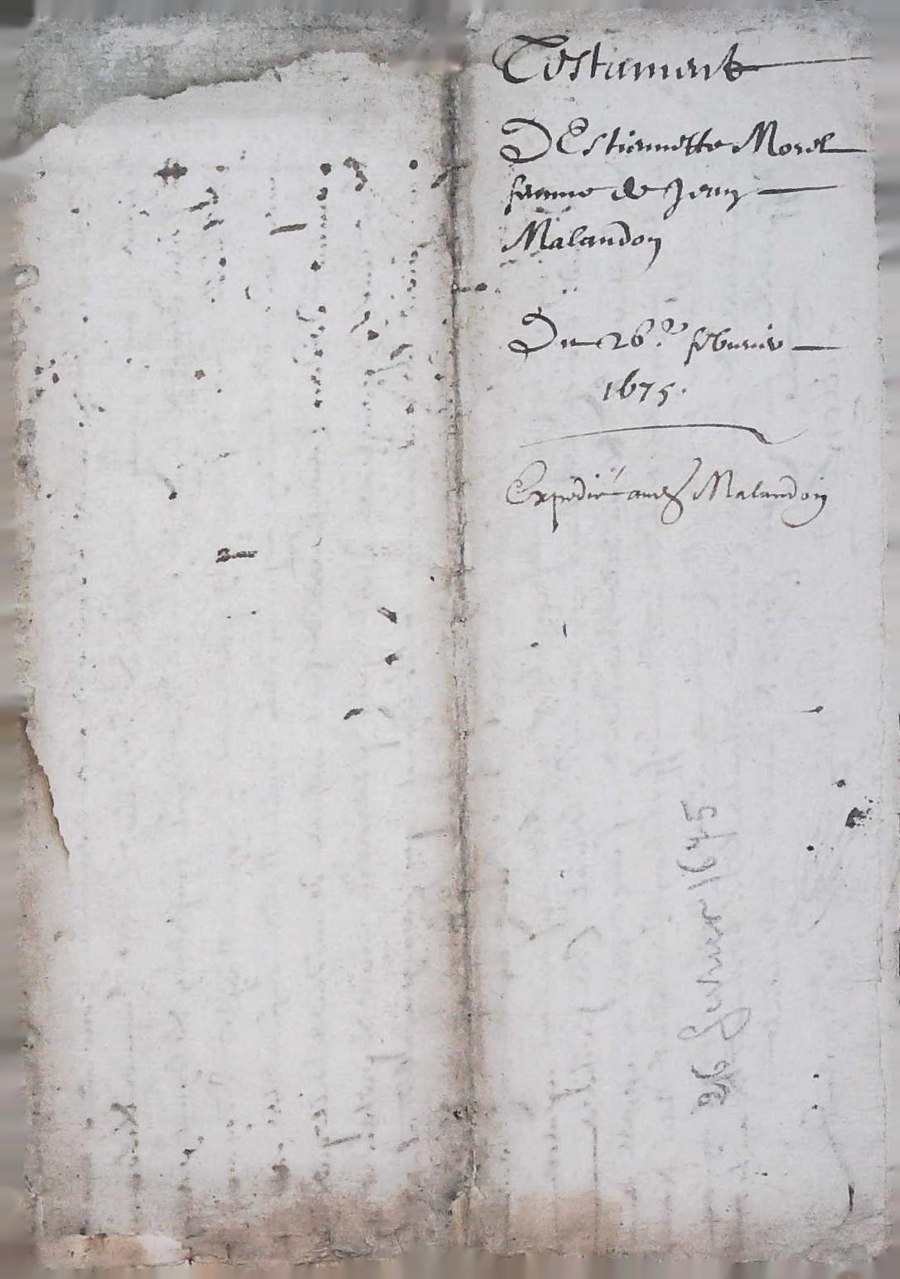 Testament
D'Estiennette Morel
femme de Jean
Malandon
Du 26.e febvrier
1675.
Expedié Malandon
26 fevrier 1675